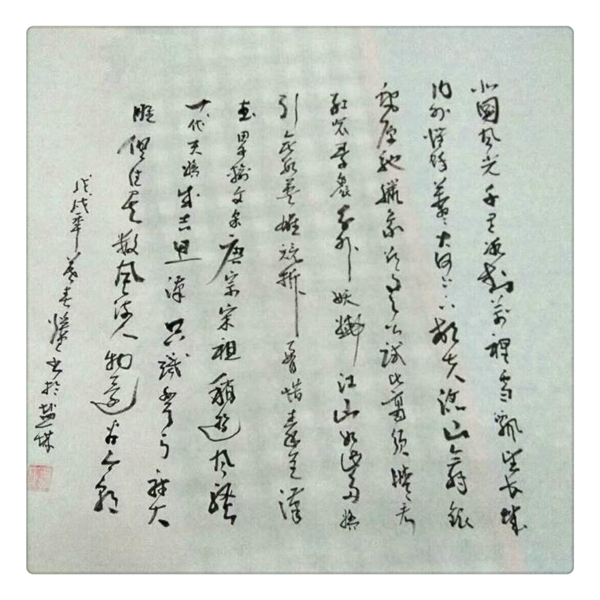 北國风光千里冰封萬裡雪飘望长城
内外惟馀莽大河上下顿失滔山舞银
蛇原驰腊象欲与天公试比高须晴看
红装素裹分外妖娆江山如此多娇
引无数英雄竞折腰惜秦皇漢
武略输文采唐宗宋祖稍逊风骚
一代天骄成吉思漢只識弯弓射大
雕俱往矣数风流人物还看今朝
戊戌年暮春书於盐城